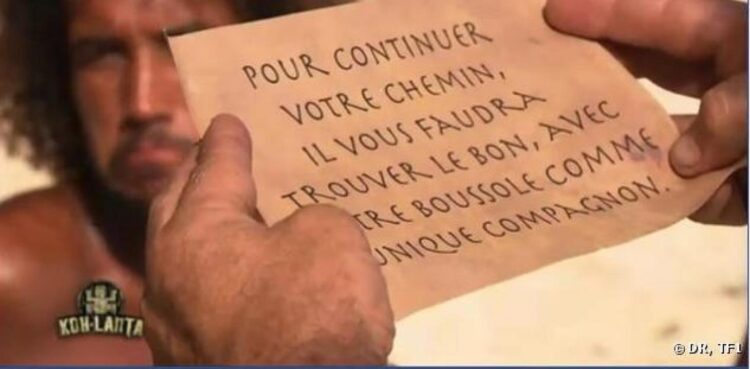 POUR CONTINUER
VOTRE CHEMIN,
IL VOUS FAUDRA
TROUVER LE BON, AVEC
TRE BOUSSOLE COMME
UNIQUE COMPAGNON.
KOH-LANTA
© DR, TF1